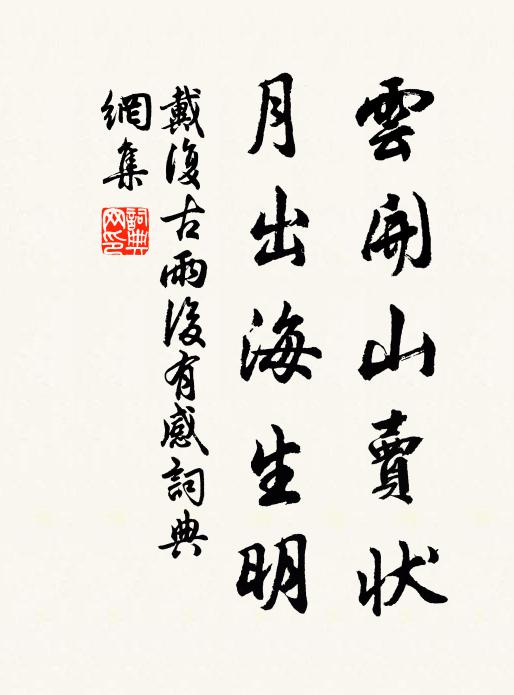 雲開山賣狀
月出海生明
戴復古雨後有感詞典
網集
詞典
网印